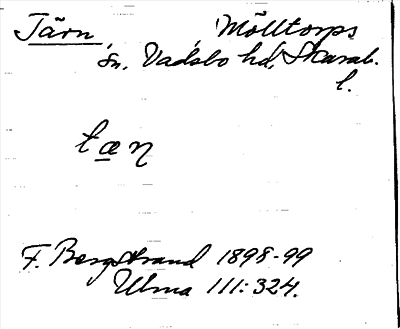 Tärn, Mölltorps
sn, Vadsbo hd, Skarab.
l.
tæn
F. Bergstrand 1898-99
Ulma 111:324.